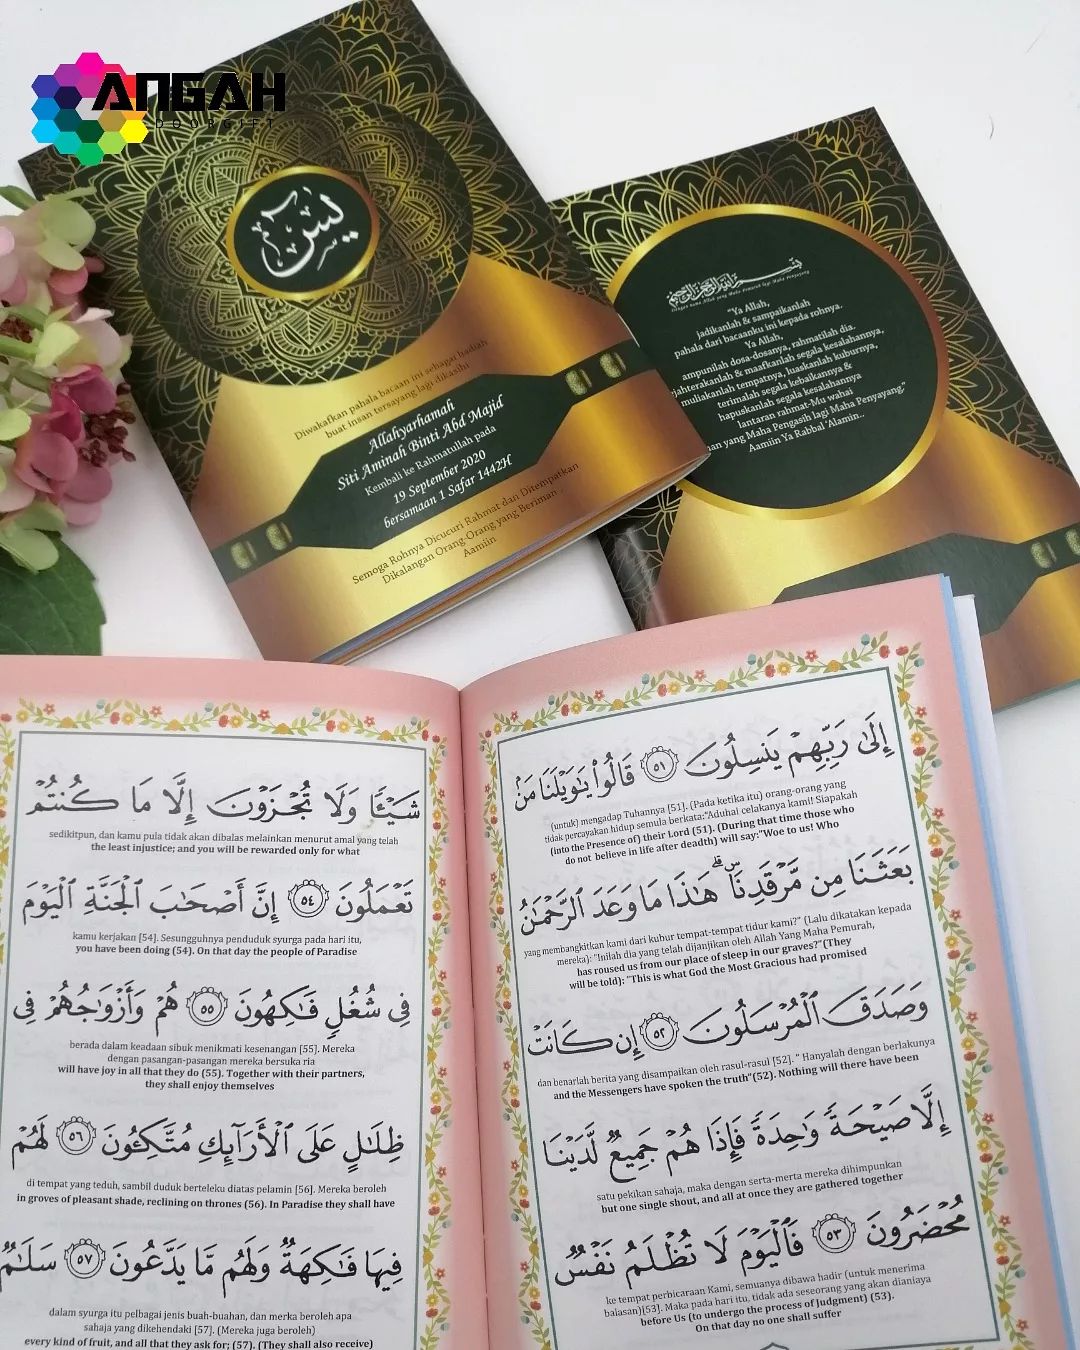 ANGAH
DOORGIFT
يس
Diwakafkan pahala bacaan ini sebagai hadiah
buat insan tersayang lagi dikasihi
Allahyarhamah
Siti Aminah Binti Abd Majid
Kembali ke Rahmatullah pada
19 September 2020
bersamaan 1 Safar 1442H
Semoga Rohnya Dicucuri Rahmat dan Ditempatkan
Dikalangan Orang-Orang yang Beriman
Aamiin
بسم الله الرحمن الرحيم
Dengan nama Allah yang Maha Pemurah lagi Maha Penyayang
"Ya Allah,
jadikanlah & sampaikanlah
pahala dari bacaanku ini kepada rohnya.
Ya Allah,
ampunilah dosa-dosanya, rahmatilah dia.
jahterakanlah & maafkanlah segala kesalahannya,
muliakanlah tempatnya, luaskanlah kuburnya,
terimalah segala kebaikannya &
hapuskanlah segala kesalahannya
lantaran rahmat-Mu wahai
yang Maha Pengasih lagi Maha Penyayang."
Aamiin Ya Rabbal 'Alamin..
إِلَىٰ رَبِّهِمْ يَنسِلُونَ ٥١ قَالُوا۟ يَـٰوَيْلَنَا مَنۢ
(untuk) mengadap Tuhannya [51]. (Pada ketika itu) orang-orang yang
tidak percayakan hidup semula berkata:"Aduhai celakanya kami! Siapakah
(into the Presence of) their Lord (51). (During that time those who
do not believe in life after deadth) will say:"Woe to us! Who
بَعَثَنَا مِن مَّرْقَدِنَا ۜ ۗ هَـٰذَا مَا وَعَدَ ٱلرَّحْمَـٰنُ
yang membangkitkan kami dari kubur tempat-tempat tidur kami?" (Lalu dikatakan kepada
mereka): "Inilah dia yang telah dijanjikan oleh Allah Yang Maha Pemurah,
has roused us from our place of sleep in our graves?"(They
will be told): "This is what God the Most Gracious had promised
وَصَدَقَ ٱلْمُرْسَلُونَ ٥٢ إِن كَانَتْ
dan benarlah berita yang disampaikan oleh rasul-rasul [52]. " Hanyalah dengan berlakunya
and the Messengers have spoken the truth"(52). Nothing will there have been
إِلَّا صَيْحَةً وَٰحِدَةً فَإِذَا هُمْ جَمِيعٌ لَّدَيْنَا
satu pekikan sahaja, maka dengan serta-merta mereka dihimpunkan
but one single shout, and all at once they are gathered together
مُحْضَرُونَ ٥٣ فَٱلْيَوْمَ لَا تُظْلَمُ نَفْسٌ
ke tempat perbicaraan Kami, semuanya dibawa hadir (untuk menerima
balasan)[53]. Maka pada hari itu, tidak ada seseorang yang akan dianiaya
before Us (to undergo the process of Judgment) (53).
On that day no one shall suffer
شَيْـًٔا وَلَا تُجْزَوْنَ إِلَّا مَا كُنتُمْ
sedikitpun, dan kamu pula tidak akan dibalas melainkan menurut amal yang telah
the least injustice; and you will be rewarded only for what
تَعْمَلُونَ ٥٤ إِنَّ أَصْحَـٰبَ ٱلْجَنَّةِ ٱلْيَوْمَ
kamu kerjakan [54]. Sesungguhnya penduduk syurga pada hari itu,
you have been doing (54). On that day the people of Paradise
فِى شُغُلٍ فَـٰكِهُونَ ٥٥ هُمْ وَأَزْوَٰجُهُمْ فِى
berada dalam keadaan sibuk menikmati kesenangan [55]. Mereka
dengan pasangan-pasangan mereka bersuka ria
will have joy in all that they do (55). Together with their partners,
they shall enjoy themselves
ظِلَـٰلٍ عَلَى ٱلْأَرَآئِكِ مُتَّكِـُٔونَ ٥٦ لَهُمْ
di tempat yang teduh, sambil duduk berteleku diatas pelamin [56]. Mereka beroleh
in groves of pleasant shade, reclining on thrones (56). In Paradise they shall have
فِيهَا فَـٰكِهَةٌ وَلَهُم مَّا يَدَّعُونَ ٥٧ سَلَـٰمٌ
dalam syurga itu pelbagai jenis buah-buahan, dan merka beroleh apa
sahaja yang dikehendaki [57]. (Mereka juga beroleh)
every kind of fruit, and all that they ask for; (57). (They shall also receive)